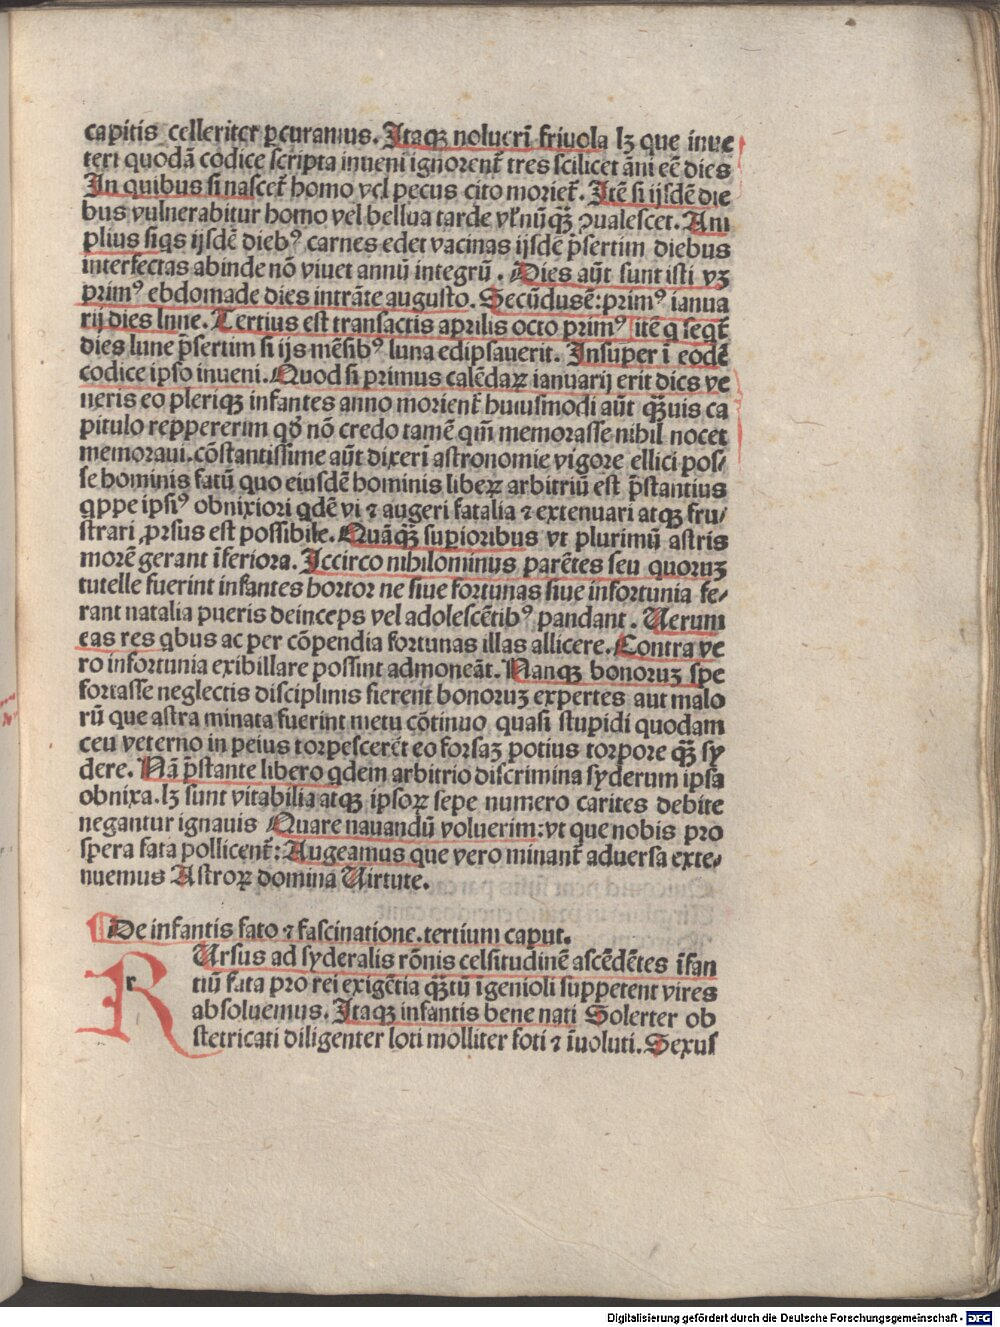 capitis celleriter ꝓcuramus. Itaqꝫ noluerī friuola lꝫ que inue
teri quodā codice scripta inueni ignorenť tres scilicet āni eē dies
In quibus si nasceť homo vel pecus cito morieť. Itē si ijsdē die
bus vulnerabitur homo vel bellua tarde vľ nūqꝫ̄ ꝯualescet. Am
plius siqs ijsdē diebꝰ carnes edet vacinas ijsdē p̄sertim diebus
interfectas abinde nō viuet annū integrū. Dies aūt sunt isti vꝫ
primꝰ ebdomade dies intrāte augusto. Secūdusē: primꝰ ianua
rij dies lune. Tertius est transactis aprilis octo primꝰ itē q seqť
dies lune p̄sertim si ijs mēsibꝰ luna edipsauerit. Insuper ī eodē
codice ipso inueni. Quod si primus calēdaꝝ ianuarij erit dies ve
neris eo pleriqꝫ infantes anno morienť huiusmodi aūt qꝫ̄uis ca
pitulo reppererim qđ nō credo tamē qm̄ memorasse nihil nocet
memoraui. cōstantissime aūt dixerī astronomie vigore ellici pos⸗
se hominis fatū quo eiusdē hominis liberꝝ arbitriū est p̄stantius
qppe ipsiꝰ obnixiori qdē vi ⁊ augeri fatalia ⁊ extenuari atqꝫ fru⸗
strari ꝓrsus est possibile. Quāqꝫ̄ suꝑioribus vt plurimū astris
morē gerant īferiora. Iccirco nihilominus parētes seu quoruꝫ
tutelle fuerint infantes hortor ne siue fortunas siue infortunia fe⸗
rant natalia pueris deinceps vel adolescētibꝰ pandant. Uerum
eas res qbus ac per cōpendia fortunas illas allicere. Contra ve
ro infortunia exibillare possint admoneāt. Nanqꝫ bonoruꝫ spe
fortasse neglectis disciplinis fierent bonoruꝫ expertes aut malo
rū que astra minata fuerint metu cōtinuo quasi stupidi quodam
ceu veterno in peius torpescerēt eo forsaꝫ potius torpore qꝫ̄ sy
dere. Nā p̄stante libero qdem arbitrio discrimina syderum ipsa
obnixa. lꝫ sunt vitabilia atqꝫ ipsoꝝ sepe numero carites debite
negantur ignauis Quare nauandū voluerim: vt que nobis pro
spera fata pollicenť: Augeamus que vero minanť aduersa exte⸗
nuemus Astroꝝ domina Uirtute.
De infantis fato ⁊ fascinatione. tertium caput.
RUrsus ad syderalis rōnis celsitudinē ascēdētes īfan
tiū fata pro rei exigētia qꝫ̄tū īgenioli suppetent vires
absoluemus. Itaqꝫ infantis bene nati Solerter ob
stetricati diligenter loti molliter foti ⁊ īuoluti. Sexus
Digitalisierung gefördert durch die Deutsche Forschungsgemeinschaft - DFG